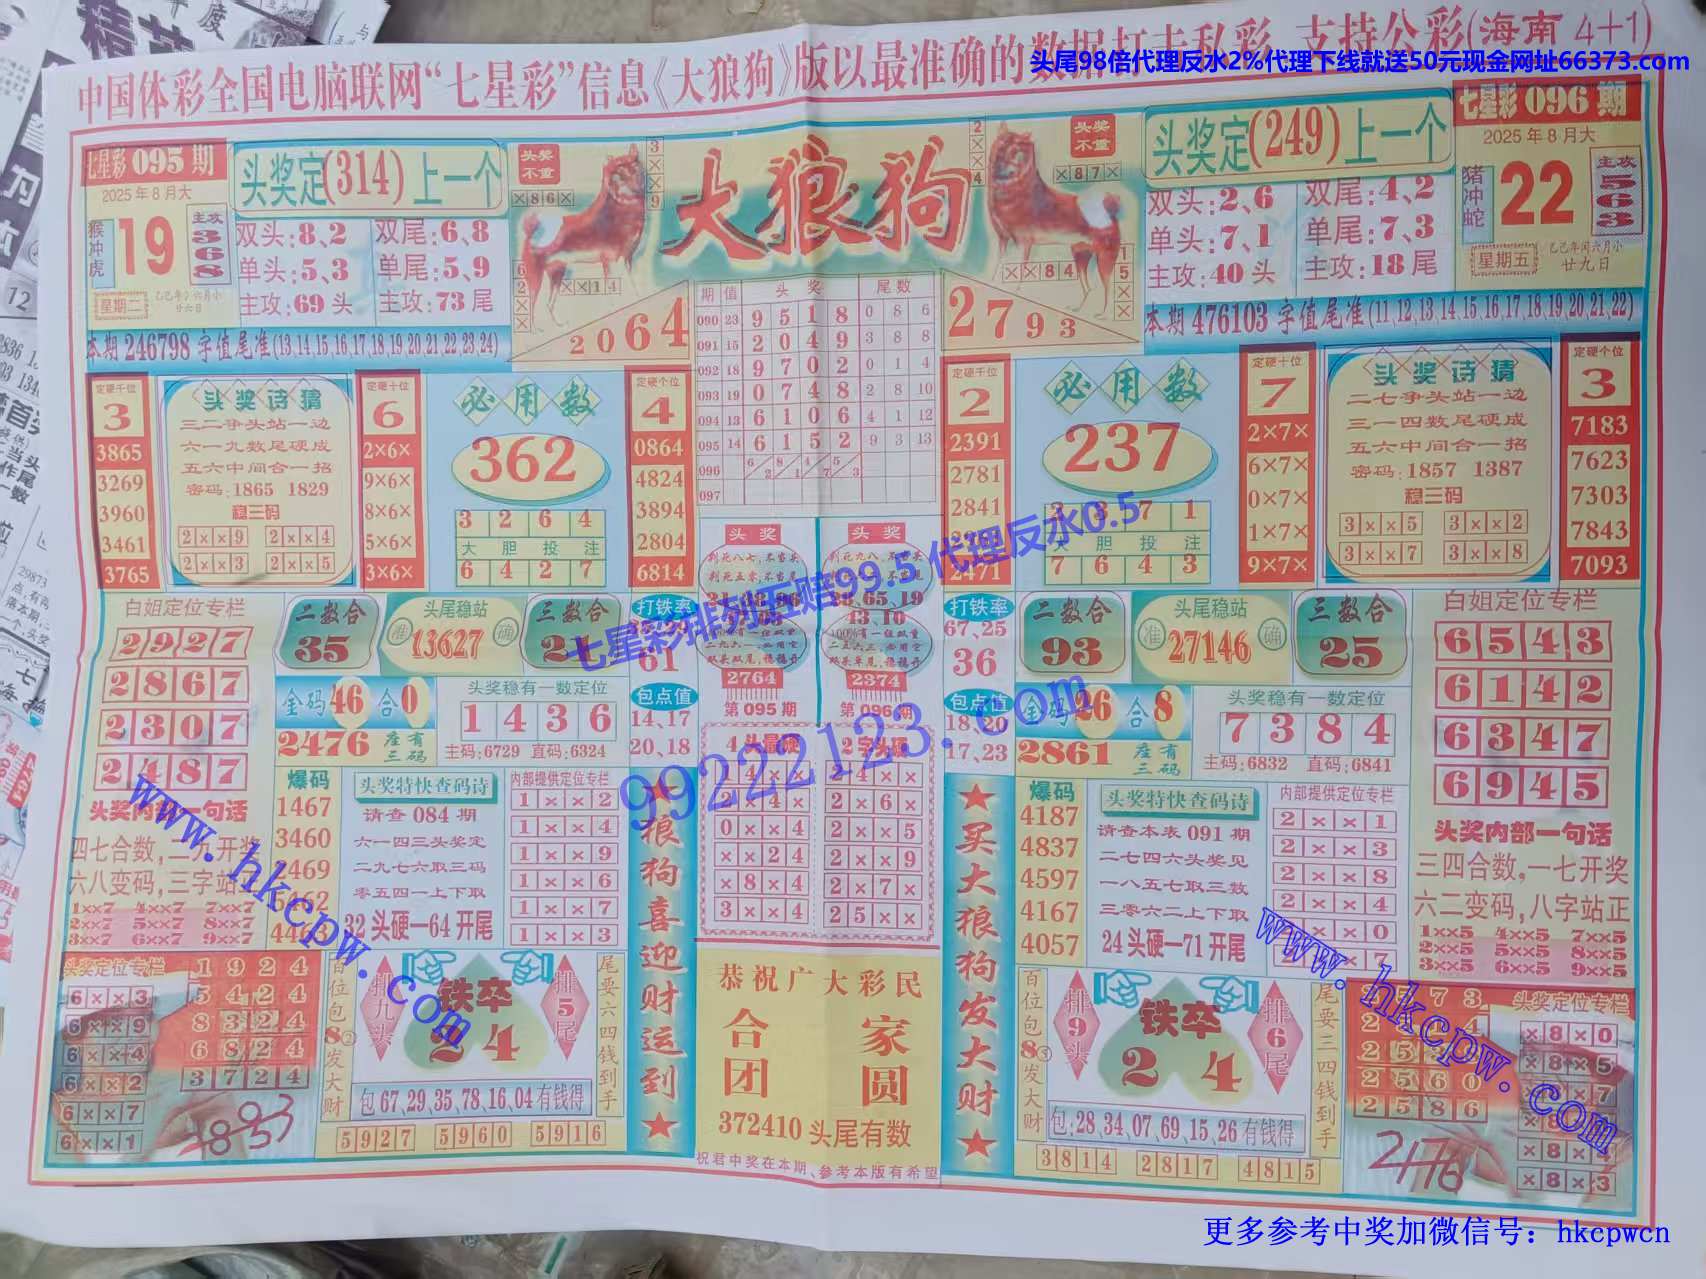 头尾98倍代理反水2%代理下线就送50元现金网址66373.com
中国体彩全国电脑联网“七星彩”信息《大狼狗》版以最准确的数据打击私彩 支持公彩(海南 4+1)
七星彩 095 期
2025 年 8 月大
猴冲虎
19
主攻 368
星期二
廿六日
头奖定(314)上一个
双头:8、2
双尾:6、8
单头:5、3
单尾:5、9
主攻:69 头
主攻:73 尾
本期 246798 字值尾准(13,14,15,16,17,18,19,20,21,22,23,24)
头奖不重
×86×
3××9
62××
××14
2064
大狼狗
头奖不重
×87×
2××4
××84
15××
2793
头奖定(249)上一个
双头:2、6
双尾:4、2
单头:7、1
单尾:7、3
主攻:40 头
主攻:18 尾
七星彩 096 期
2025 年 8 月大
猪冲蛇
22
主攻 563
星期五
乙巳年闰六月小
廿九日
本期 476103 字值尾准(11,12,13,14,15,16,17,18,19,20,21,22)
期 值 头奖 尾数
090 23 9 5 1 8 0 8 6
091 15 2 0 4 9 3 8 8
092 18 9 7 0 2 0 1 4
093 19 0 7 4 8 2 8 10
094 13 6 1 0 6 4 1 12
095 14 6 1 5 2 9 3 13
096
097
定硬千位
3
3865
3269
3960
3461
3765
头奖诗猜
三二争头站一边
六一九数尾硬成
五六中间合一招
密码:1865 1829
稳三码
2××9 2××4
2××3 2××5
定硬十位
6
2×6×
9×6×
8×6×
5×6×
3×6×
必用数
362
3 2 6 4
大胆投注
6 4 2 7
定硬个位
4
0864
4824
3894
2804
6814
定硬千位
2
2391
2781
2841
2471
必用数
237
大胆投注
7 6 4 3
定硬十位
7
2×7×
6×7×
0×7×
1×7×
9×7×
头奖诗猜
二七争头站一边
三一四数尾硬成
五六中间合一招
密码:1857 1387
稳三码
3××5 3××2
3××7 3××8
定硬个位
3
7183
7623
7303
7843
7093
七星彩排列五赔99.5 代理反水0.5
白姐定位专栏
2927
2867
2307
2487
二数合
35
头尾稳站
准 13627 确
三数合
金码 46 合 0
2476 座有三码
头奖稳有一数定位
1 4 3 6
主码:6729 直码:6324
打铁率
61
包点值
14、17
20、18
头奖
2764
第 095 期
头奖
2374
第 096 期
打铁率
67、25
36
包点值
18、20
17、23
二数合
93
头尾稳站
准 27146 确
三数合
25
金码 26 合 8
2861 座有三码
头奖稳有一数定位
7 3 8 4
主码:6832 直码:6841
白姐定位专栏
6543
6142
6347
6945
99222123.com
头奖内部一句话
四七合数,二九开奖
六八变码,三字站
1××7 4××7 7××7
2××7 5××7 8××7
3××7 6××7 9××7
爆码
1467
3460
2469
头奖特快查码诗
请查 084 期
六一四三头奖定
二九七六取三码
零五四一上下取
32 头硬—64 开尾
内部提供定位专栏
1××2
1××4
1××9
1××6
1××7
1××3
★狼狗喜迎财运到★
2×4×
0××4
××24
×8×4
3××4
2字头硬
24××
2×6×
2××5
2××9
2×7×
25××
★买大狼狗发大财★
爆码
4187
4837
4597
4167
4057
头奖特快查码诗
请查本表 091 期
二七四六头奖见
一八五七取三数
三零六二上下取
24 头硬—71 开尾
内部提供定位专栏
2××1
2××3
2××8
2××4
头奖内部一句话
三四合数,一七开奖
六二变码,八字站正
1××5 4××5 7××5
2××5 5××5 8××5
3××5 6××5 9××5
www.hkcpw.com
www.hkcpw.com
头奖定位专栏
6××3
6××9
6××4
6××2
6××7
6××1
1924
5424
8324
6824
3724
3853
百位包8②发大财
排九头
铁卒
24
排5尾
包 67,29,35,78,16,04 有钱得
5927 5960 5916
尾要六四钱到手
恭祝广大彩民
合家团圆
372410 头尾有数
祝君中奖在本期、参考本版有希望
百位包8③发大财
排9头
铁卒
24
排6尾
包:28,34,07,69,15,26 有钱得
3814 2817 4815
尾要三四钱到手
2560
2586
2176
头奖定位专栏
×8×0
×8×5
×8×4
×8×3
更多参考中奖加微信号：hkcpwcn